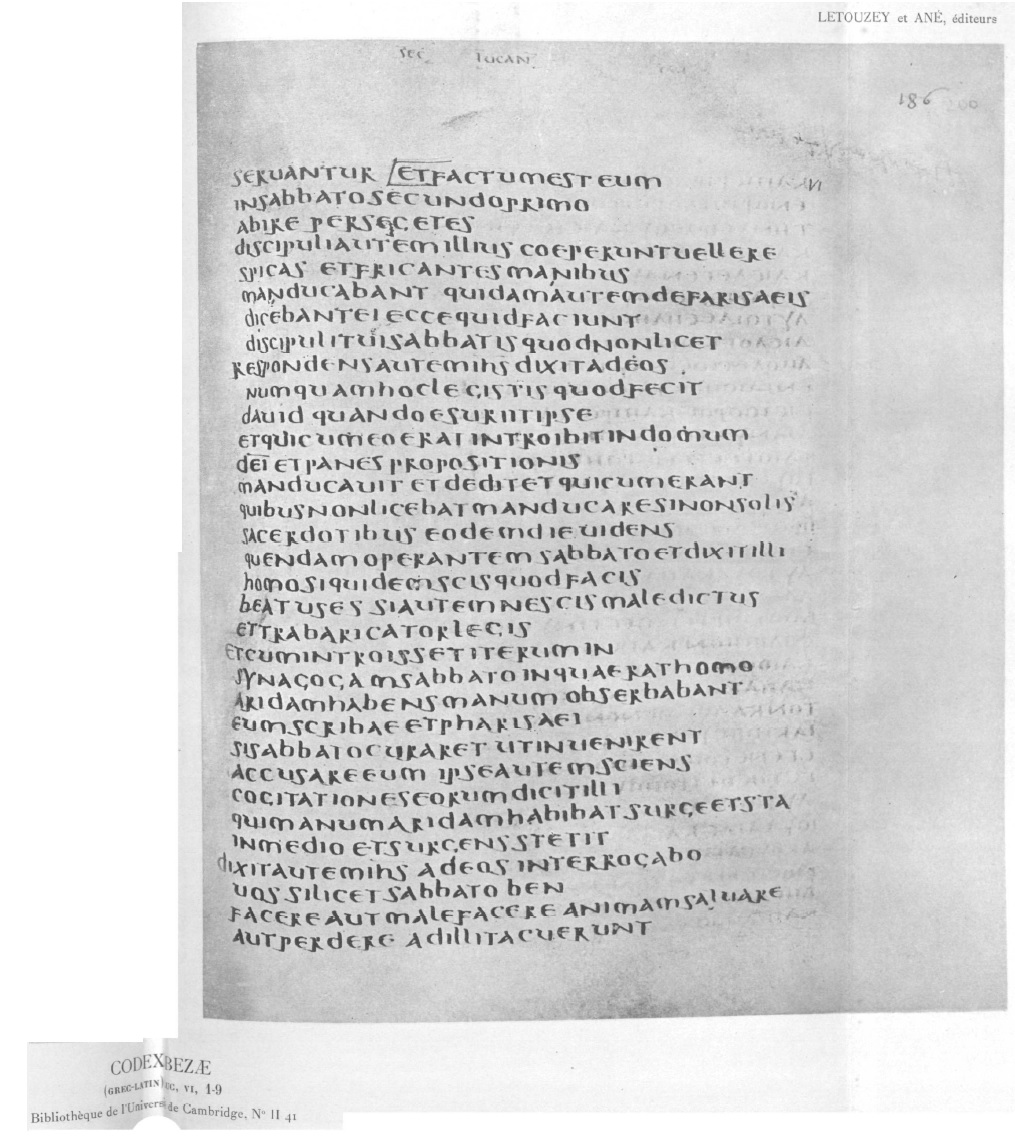 LETOUZEY et ANÉ, éditeurs
SEC LUCAN
186
SERUANTUR ETFACTUMESTEUM
INSABBATOSECUNDOPRIMO
ABIRE PERSEGETES
DISCIPULIAUTEMILLIUS COEPERUNTUELLERE
SPICAS ETFRICANTESMANIBUS
MANDUCABANT QUIDAMAUTEMDEFARISAEIS
DICEBANTEI ECCEQUIDFACIUNT
DISCIPULITUISABBATISQUODNONLICET
RESPONDENSAUTEMIHS DIXITADEOS
NUMQUAMHOCLEGISTISQUODFECIT
DAUID QUANDOESURIITIPSE
ETQUICUMEOERAT INTROIBITINDOMUM
DEI ETPANES PROPOSITIONIS
MANDUCAUIT ETDEDITETQUICUMERANT
QUIBUSNONLICEBATMANDUCARESINONSOLIS
SACERDOTIBUS EODEMDIEUIDENS
QUENDAMOPERANTEM SABBATOETDIXITILLI
HOMOSIQUIDEMSCISQUODFACIS
BEATUSES SIAUTEMNESCISMALEDICTUS
ETTRABARICATORLEGIS
ETCUMINTROISSETITERUMIN
SYNAGOGAMSABBATOINQUAERATHOMO
ARIDAMHABENSMANUM OBSERBABANT
EUMSCRIBAEETPHARISAEI
SISABBATOCURARET UTINUENIRENT
ACCUSAREEUM IPSEAUTEMSCIENS
COGITATIONESEORUMDICITILLI
QUIMANUMARIDAMHABIBAT SURGEETSTA
INMEDIO ETSURGENSSTETIT
DIXITAUTEMIHS ADEOS INTERROGABO
UOS SILICETSABBATO BEN
FACEREAUTMALEFACERE ANIMAMSALUARE
AUTPERDERE ADILLITACUERUNT
CODEX BEZÆ
(GREC-LATIN) EC, VI, 1-9
Bibliothèque de l'Univers de Cambridge, N° II 41